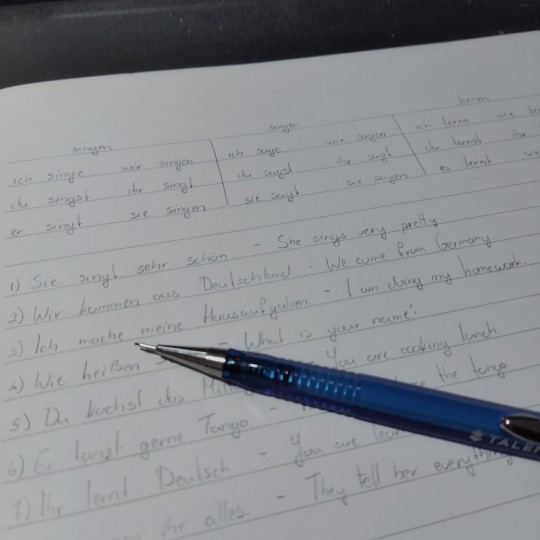 singen sagen lernen
ich singe wir singen ich sage wir sagen ich lerne wir
du singst ihr singt du sagst ihr sagt du lernst ihr
er singt sie singen sie sagt sie sagen er lernt
1) Sie singt sehr schön - She sings very pretty
2) Wir kommen aus Deutschland - We come from Germany
3) Ich mache meine Hausaufgaben - I am doing my homework
4) Wie heißen - What is your name?
5) Du kochst das - You are cooking lunch
6) Er tanzt gerne Tango - the tango
7) Ihr lernt Deutsch - You are
ihr alles - They tell her everything
STAEDTLER